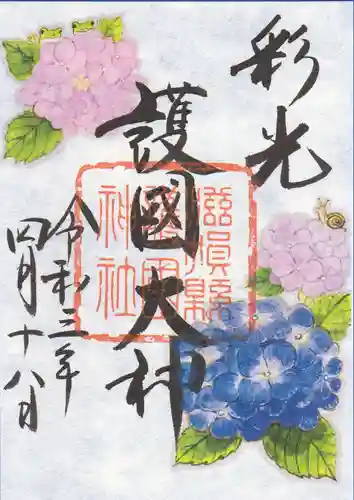 彩光
護國大神
滋賀縣
護國
神社
令和三年
四月十八日